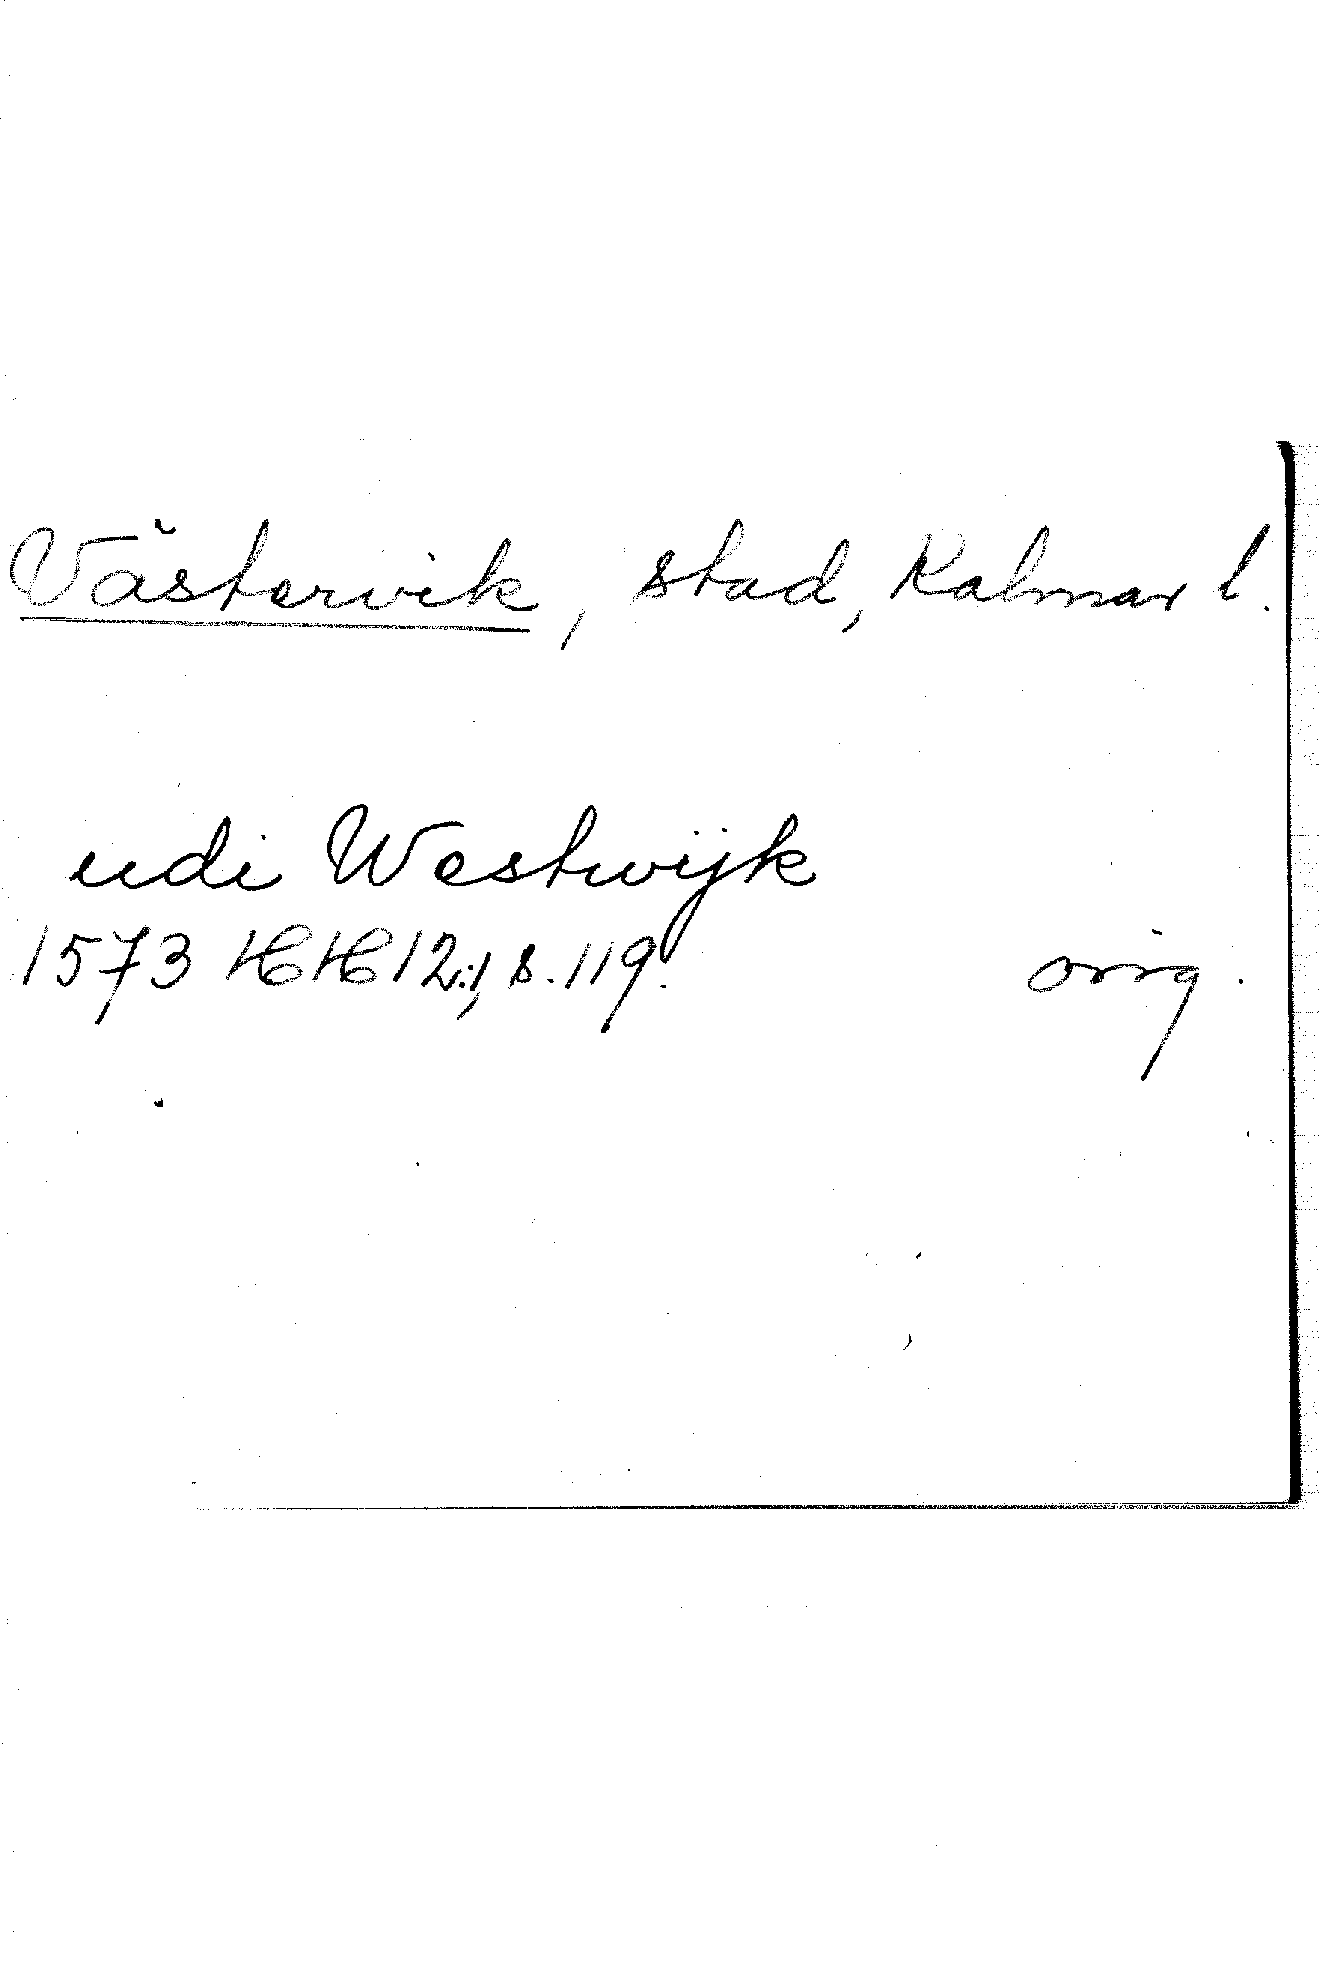 Västervik, stad, Kalmar l.
udi Westwijk
1573 HH 12:1, s. 119. orig.